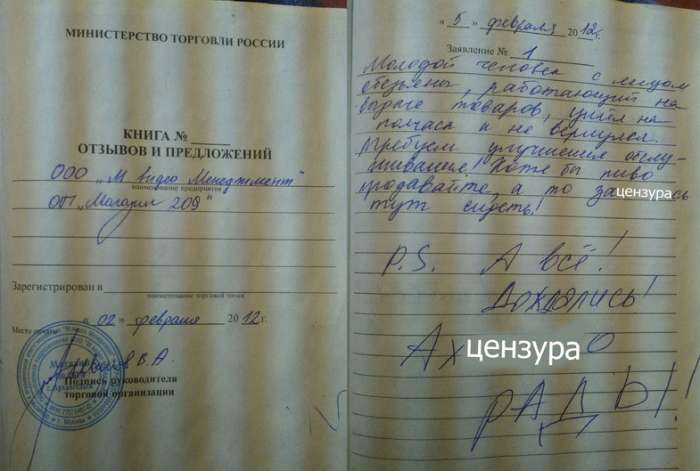 МИНИСТЕРСТВО ТОРГОВЛИ РОССИИ
КНИГА №
ОТЗЫВОВ И ПРЕДЛОЖЕНИЙ
ООО „М Видео Менеджмент"
наименование предприятия
ОП „Магазин 209"
Зарегистрирован в
наименование торговой точки
« 02 » февраля 2012г.
Место печати
В.А.
Подпись руководителя
торговой организации
« 5 » февраля 2012г.
Заявление № 1
Молодой человек с лицом
обезьяны, работающий на
выдаче товаров, ушел на
полчаса и не вернулся.
Требуем улучшения обслу-
живания! Хотя бы пиво
продавайте, а то за цензура сь
тут сидеть!
P.S. А всё!
Дождались!
Ах цензура о
РАДЫ!